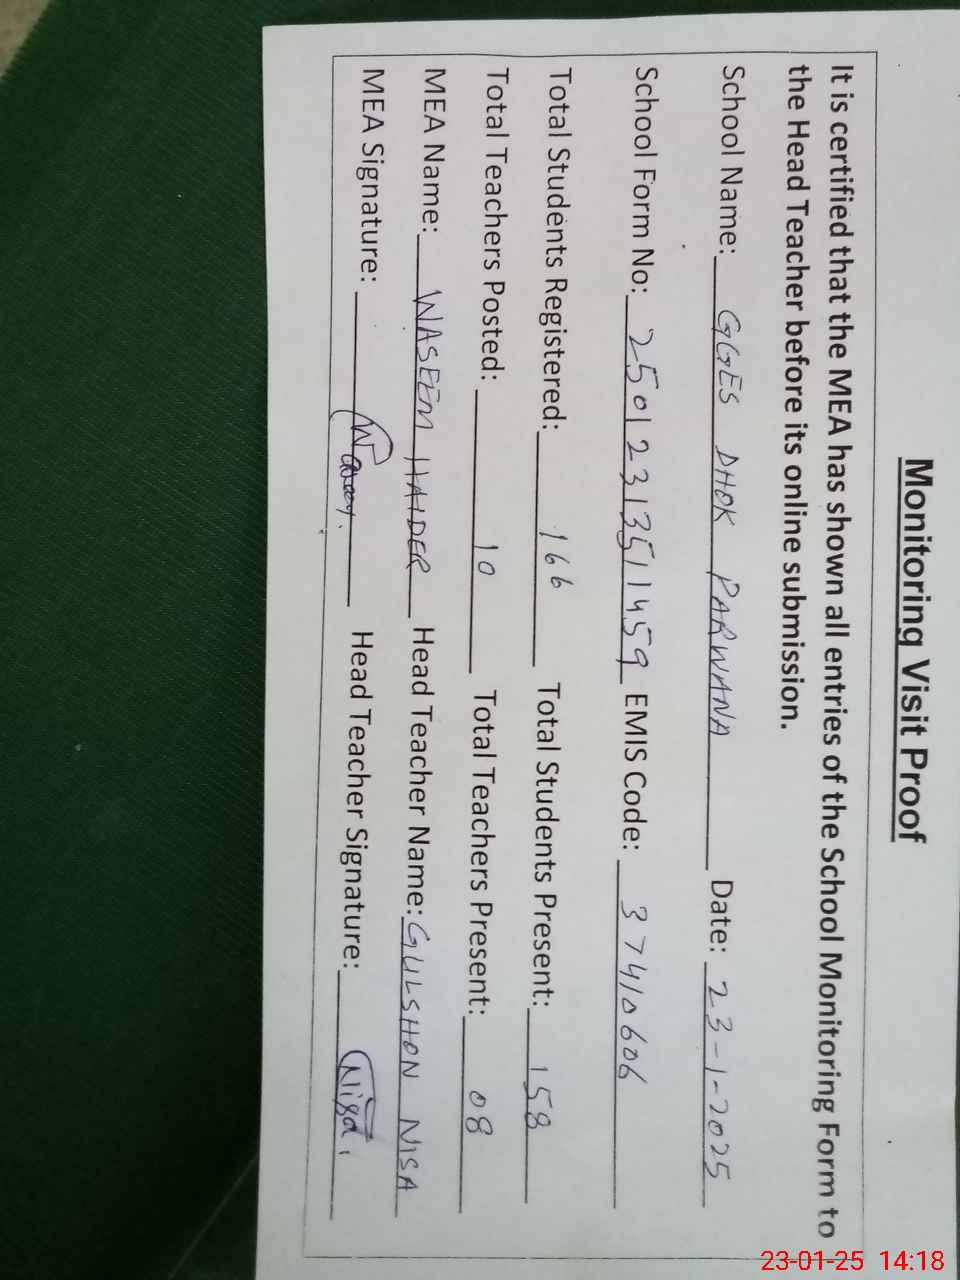 Monitoring Visit Proof
It is certified that the MEA has shown all entries of the School Monitoring Form to
the Head Teacher before its online submission.
School Name: GGES DHOK PARWANA Date: 23-1-2025
School Form No: 25012313511459 EMIS Code: 37410606
Total Students Registered: 166 Total Students Present: 158
Total Teachers Posted: 10 Total Teachers Present: 08
MEA Name: WASEEM HAIDER Head Teacher Name: GULSHON NISA
MEA Signature: Head Teacher Signature: Nisa
23-01-25 14:18